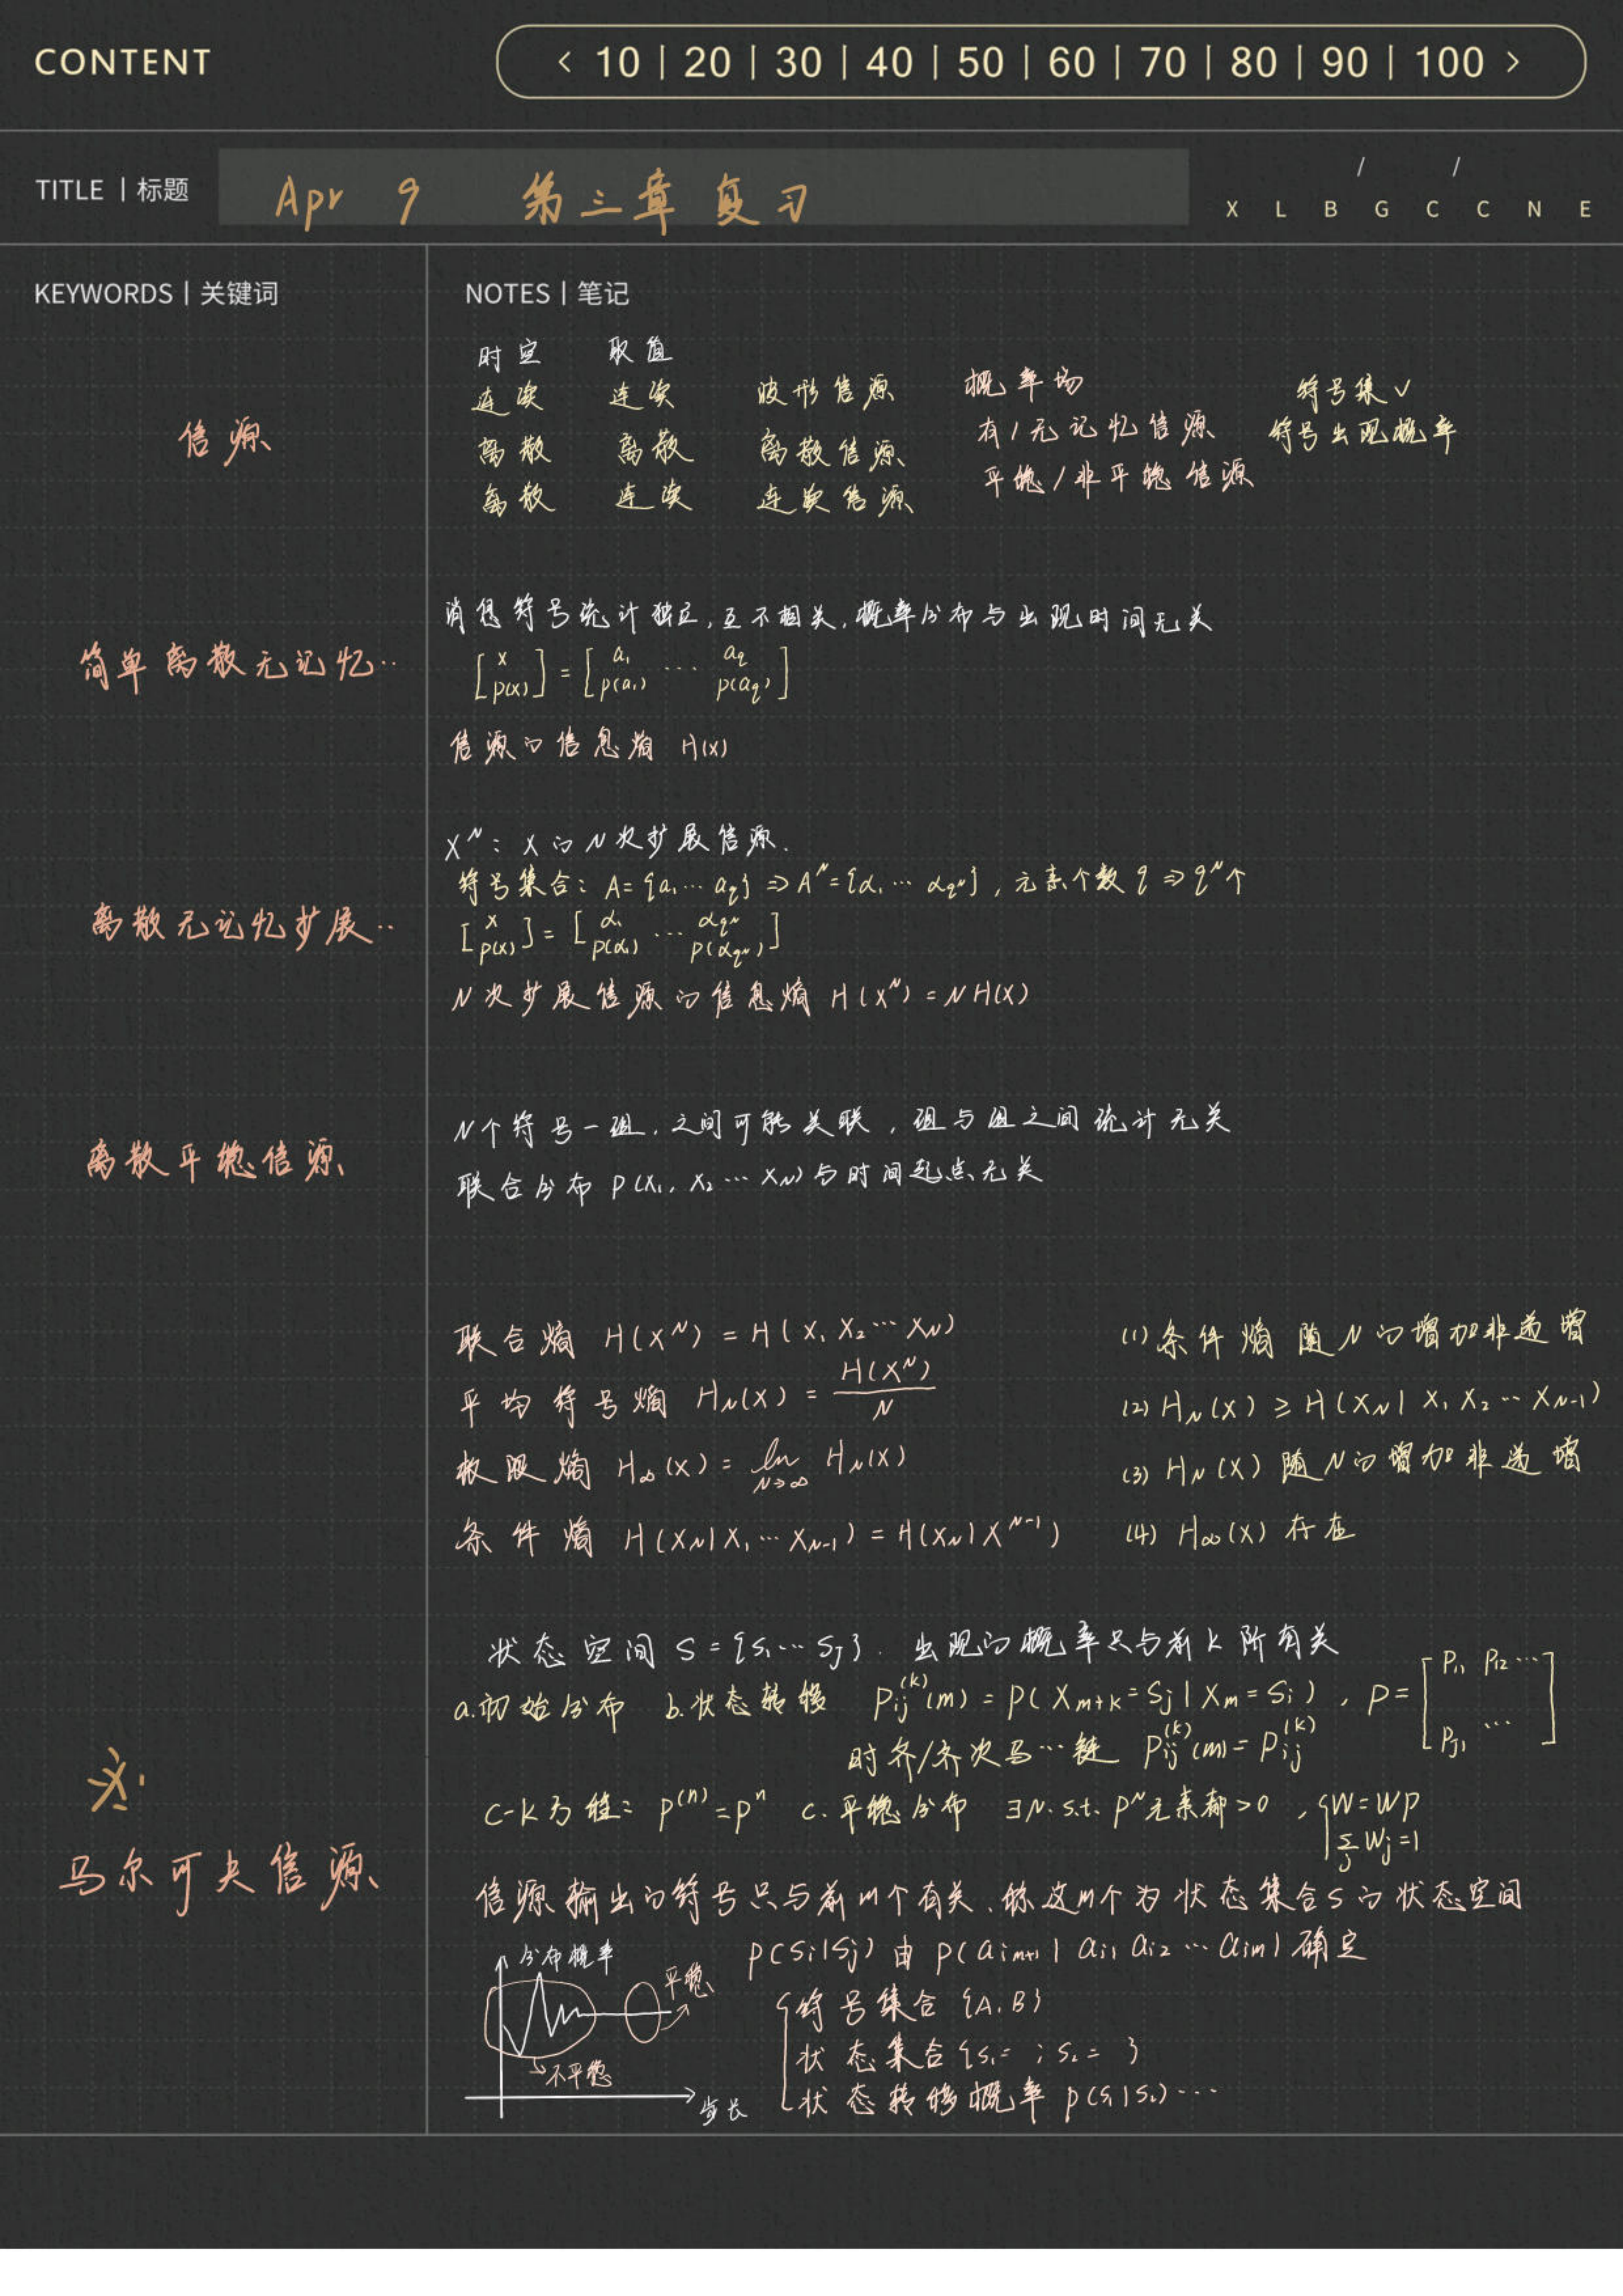 CONTENT
< 10 | 20 | 30 | 40 | 50 | 60 | 70 | 80 | 90 | 100 >
TITLE | 标题
Apr 9 第三章 复习
/ /
X L B G C C N E
KEYWORDS | 关键词
NOTES | 笔记
信源
时空 取值
连续 连续 波形信源 概率场 符号集✓
离散 离散 离散信源 有/无记忆信源 符号出现概率
离散 连续 连续信源 平稳/非平稳信源
简单离散无记忆··
消息符号统计独立,互不相关,概率分布与出现时间无关
[x p(x)] = [a₁ ··· a_q p(a₁) p(a_q)]
信源的信息熵 H(x)
离散无记忆扩展··
X^N: X的N次扩展信源.
符号集合: A={a₁···a_q} ⇒ A^N={α₁···α_{q^N}}, 元素个数 q ⇒ q^N个
[x p(x)] = [α₁ ··· α_{q^N} p(α₁) p(α_{q^N})]
N次扩展信源的信息熵 H(X^N) = NH(X)
离散平稳信源
N个符号一组,之间可能关联,组与组之间统计无关
联合分布 P(X₁, X₂···X_N)与时间起点无关
联合熵 H(X^N) = H(X₁X₂···X_N)
平均符号熵 H_N(X) = H(X^N)/N
极限熵 H_∞(X) = lim_{N→∞} H_N(X)
条件熵 H(X_N|X₁···X_{N-1}) = H(X_N|X^{N-1})
(1) 条件熵随N的增加非递增
(2) H_N(X) ≥ H(X_N|X₁X₂···X_{N-1})
(3) H_N(X) 随N的增加非递增
(4) H_∞(X) 存在
马尔可夫信源
状态空间 S={S₁···S_J}. 出现的概率只与前k阶有关
a.初始分布 b.状态转移 P_{ij}^{(k)}(m) = P(X_{m+k}=S_j|X_m=S_i), P=[P₁₁ P₁₂··· P_{J1} ···]
时齐/齐次马···链 P_{ij}^{(k)}(m) = P_{ij}^{(k)}
C-K方程: P^{(n)}=P^n c.平稳分布 ∃N. s.t. P^N元素都>0, {W=WP Σ_j W_j=1
信源输出的符号只与前m个有关,称这m个为状态集合S的状态空间
P(S_i|S_j) 由 P(a_{im+1}|a_{i1}a_{i2}···a_{im}) 确定
分布概率
平稳
不平稳
步长
符号集合 {A.B}
状态集合{S₁= ; S₂= }
状态转移概率 P(S₁|S₂)···